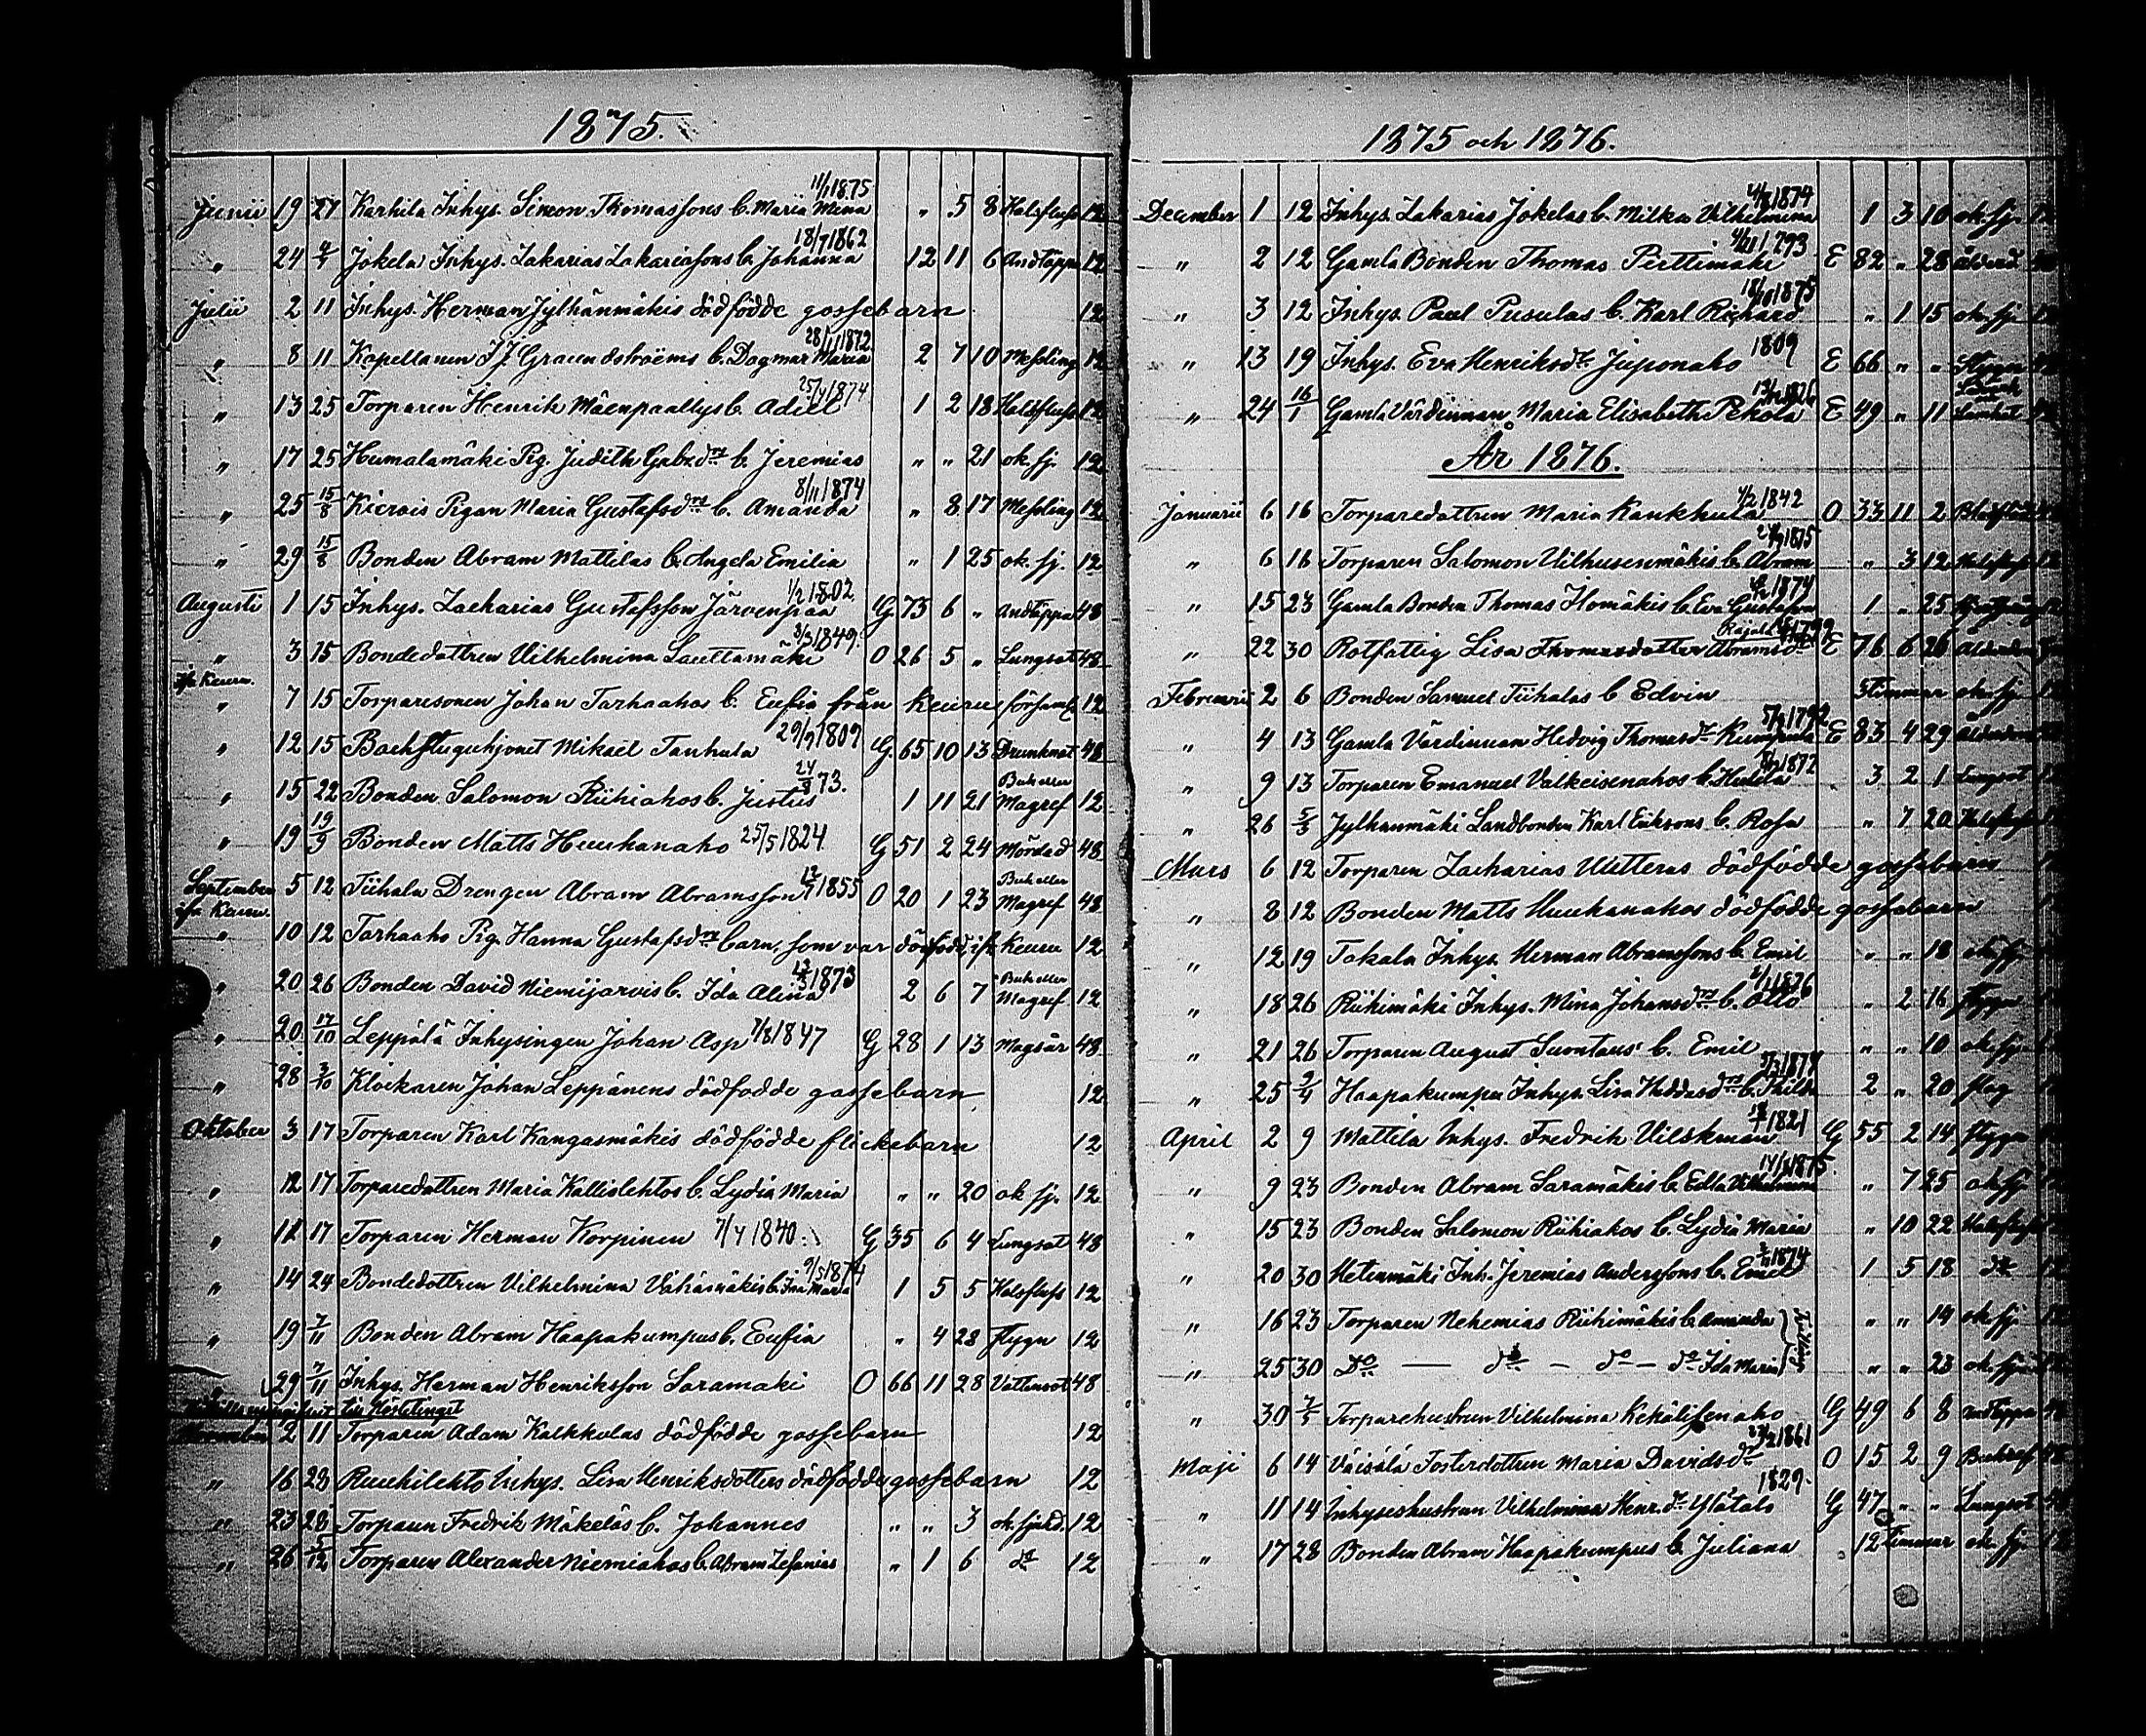 1875.
Junii 19 27 Karhila Inhys. Simon Thomassons b. Maria Mina 11/1 1875 " 5 8 Halsfluss 12
" 24 4/7 Jokela Inhys. Zakarias Zakariassons b. Johanna 18/7 1862 12 11 6 Andtäppa 12
Julii 2 11 Inhys. Herman Jylhänmäkis dödfödde gossebarn 12
" 8 11 Kapellanen J. Graundströems b. Dagmar Maria 28/11 1872 2 7 10 Messling 12
" 13 25 Torparen Henrik Mäenpaallys b. Adiel 25/4 1874 1 2 18 Halsfluss 12
" 17 25 Humalamäki Pig. Judith Gabr.drs b. Jeremias " " 21 ok. sj. 12
" 25 15/8 Pigan Maria Gustafsdrs b. Amanda 8/11 1874 " 8 17 Messling 12
" 29 15/8 Bonden Abram Mattilas b. Angela Emilia " 1 25 ok. sj. 12
Augusti 1 15 Inhys. Zacharias Gustafsson Järvenpää 1/2 1802 G 73 6 " Andtäppa 48
" 3 15 Bondedottren Vilhelmina Lauttamäki 3/3 1849 O 26 5 " Lungsot 48
ifr. Keuru.
" 7 15 Torparesonen Johan Tarhaahos b. Eufia från Keuru församl 12
" 12 15 Backstuguhjonet Mikael Tanhula 29/9 1809 G. 65 10 13 Drunknat 48
" 15 22 Bonden Salomon Riihiahos b. Justus 24/8 73. 1 11 21 Buk eller Magref 12
" 19 19/9 Bonden Matts Huuhanaho 25/5 1824 G 51 2 24 Mördad 48
September 5 12 Tiihala Drengen Abram Abramsson 12/7 1855 O 20 1 23 Buk eller Magref 48
ifr. Keuru.
" 10 12 Tarhaaho Pig. Hanna Gustafsdrs barn, som var dödfödd ifr. Keuru 12
" 20 26 Bonden David Niemijarvis b. Ida Alina 13/3 1873 2 6 7 Buk eller Magref 12
" 20 17/10 Leppälä Inhysingen Johan Asp 7/8 1847 G 28 1 13 Magsår 48
" 28 3/10 Klockaren Johan Leppänens dödfodde gossebarn 12
Oktober 3 17 Torparen Karl Kangasmäkis dödfödde flickebarn 12
" 12 17 Torparedottren Maria Kallislehtos b. Lydia Maria " " 20 ok sj. 12
" 11 17 Torparen Herman Korpinen 7/4 1840 G 35 6 4 Lungsot 48
" 14 24 Bondedottren Vilhelmina Vähämäkis b. Ina Maria 9/5 1874 1 5 5 Halsfluss 12
" 19 7/11 Bonden Abram Haapakumpus b. Eufia " 4 28 flygn 12
" 29 7/11 Inhys. Herman Henriksson Saramaki O 66 11 28 Vattensot 48
till Höstetinget
November 2 11 Torparen Adam Kalkkulas dödfödde gossebarn 12
" 16 28 Ruuhilehto Inhys. Lisa Henriksdotters dödfödde gossebarn 12
" 23 28 Torparen Fredrik Mäkeläs b. Johannes " " 3 ok. sjukd. 12
" 26 5/12 Torparen Alexander Niemiahos b. Abram Zefanias " 1 6 do 12
1875 och 1876.
December 1 12 Inhys. Zakarias Jokelas b. Milka Vilhelmina 1874 1 3 10 ok. sj. 12
" 2 12 Gamla Bonden Thomas Pirttimäki 1793 E 82 " 28 ålderd
" 3 12 Inhys. Paul Pusulas b. Karl Richard 18/10 1875 " 1 15 ok. sj. 12
" 13 19 Inhys. Eva Henriksdr Juponaho 1809 E 66 " "
" 24 16/1 Gamla Värdinnan Maria Elisabetha Pekola 1826 E 49 " 11
År 1876.
Januarii 6 16 Torparedottren Maria Kaukhula 4/2 1842 O 33 11 2
" 6 16 Torparen Salomon Vilhusenmäkis b. Abram 24/9 1875 " 3 12 Halsfluss 12
" 15 23 Gamla Bonden Thomas Homäkis b. Eva Gustafva 1874 1 " 25
" 22 30 Rotfattig Lisa Thomasdotter Abramsdr E 76 6 26 Ålderdom
Februarii 2 6 Bonden Samuel Tiihalas b Edvin 5 timmar ok. sj. 12
" 4 13 Gamla Värdinnan Hedvig Thomasdr Kumpula 5/9 1792 E 83 4 29 Ålderdom
" 9 13 Torparen Emanuel Valkeisenahos b. Hulda 1872 3 2 1 Lungsot 12
" 26 5/3 Jylhanmäki Landbonden Karl Erikssons b. Rosa " 7 20 Halsfluss
Mars 6 12 Torparen Zacharias Uutteras dödfödde gossebarn
" 8 12 Bonden Matts Huuhanahos dödfödde gossebarn
" 12 19 Tokala Inhys. Herman Abramssons b. Emil " " 18 ok. sj.
" 18 26 Riihimäki Inhys. Mina Johansdrs b. Otto 2/1 1876 " 2 16 flygn
" 21 26 Torparen August Suontaus' b. Emil " " 10 ok sj.
" 25 2/4 Haapakumpu Inhys. Lisa Heddasdrs b. Hilda 5/3 1874 2 " 20 slag
April 2 9 Mattila Inhys. Fredrik Vilskman 1821 G 55 2 14 flygn
" 9 23 Bonden Abram Saramäkis b. Edla Vilhelmina 14/8 1875 " 7 25 ok. sj.
" 15 23 Bonden Salomon Riihiahos b. Lydia Maria " 10 22 Halsfluss
" 20 30 Hetenmäki Inh. Jeremias Anderssons b. Emil 1874 1 5 18 do
" 16 23 Torparen Nehemias Riihimäkis b. Amanda " " 14 ok. sj.
" 25 30 Do — do — do — do Ida Maria " " 23 ok. sj.
" 30 7/5 Torparehustrun Vilhelmina Kekälisenaho G 49 6 8 Andtäppa
Maji 6 14 Väisälä Fosterdottren Maria Davidsdr 1861 O 15 2 9
" 11 14 Inhyseshustrun Vilhelmina Henr.dr Ylätalo 1829 G 47 " " Lungsot
" 17 28 Bonden Abram Haapakumpus b. Juliana 12 timmar ok. sj.